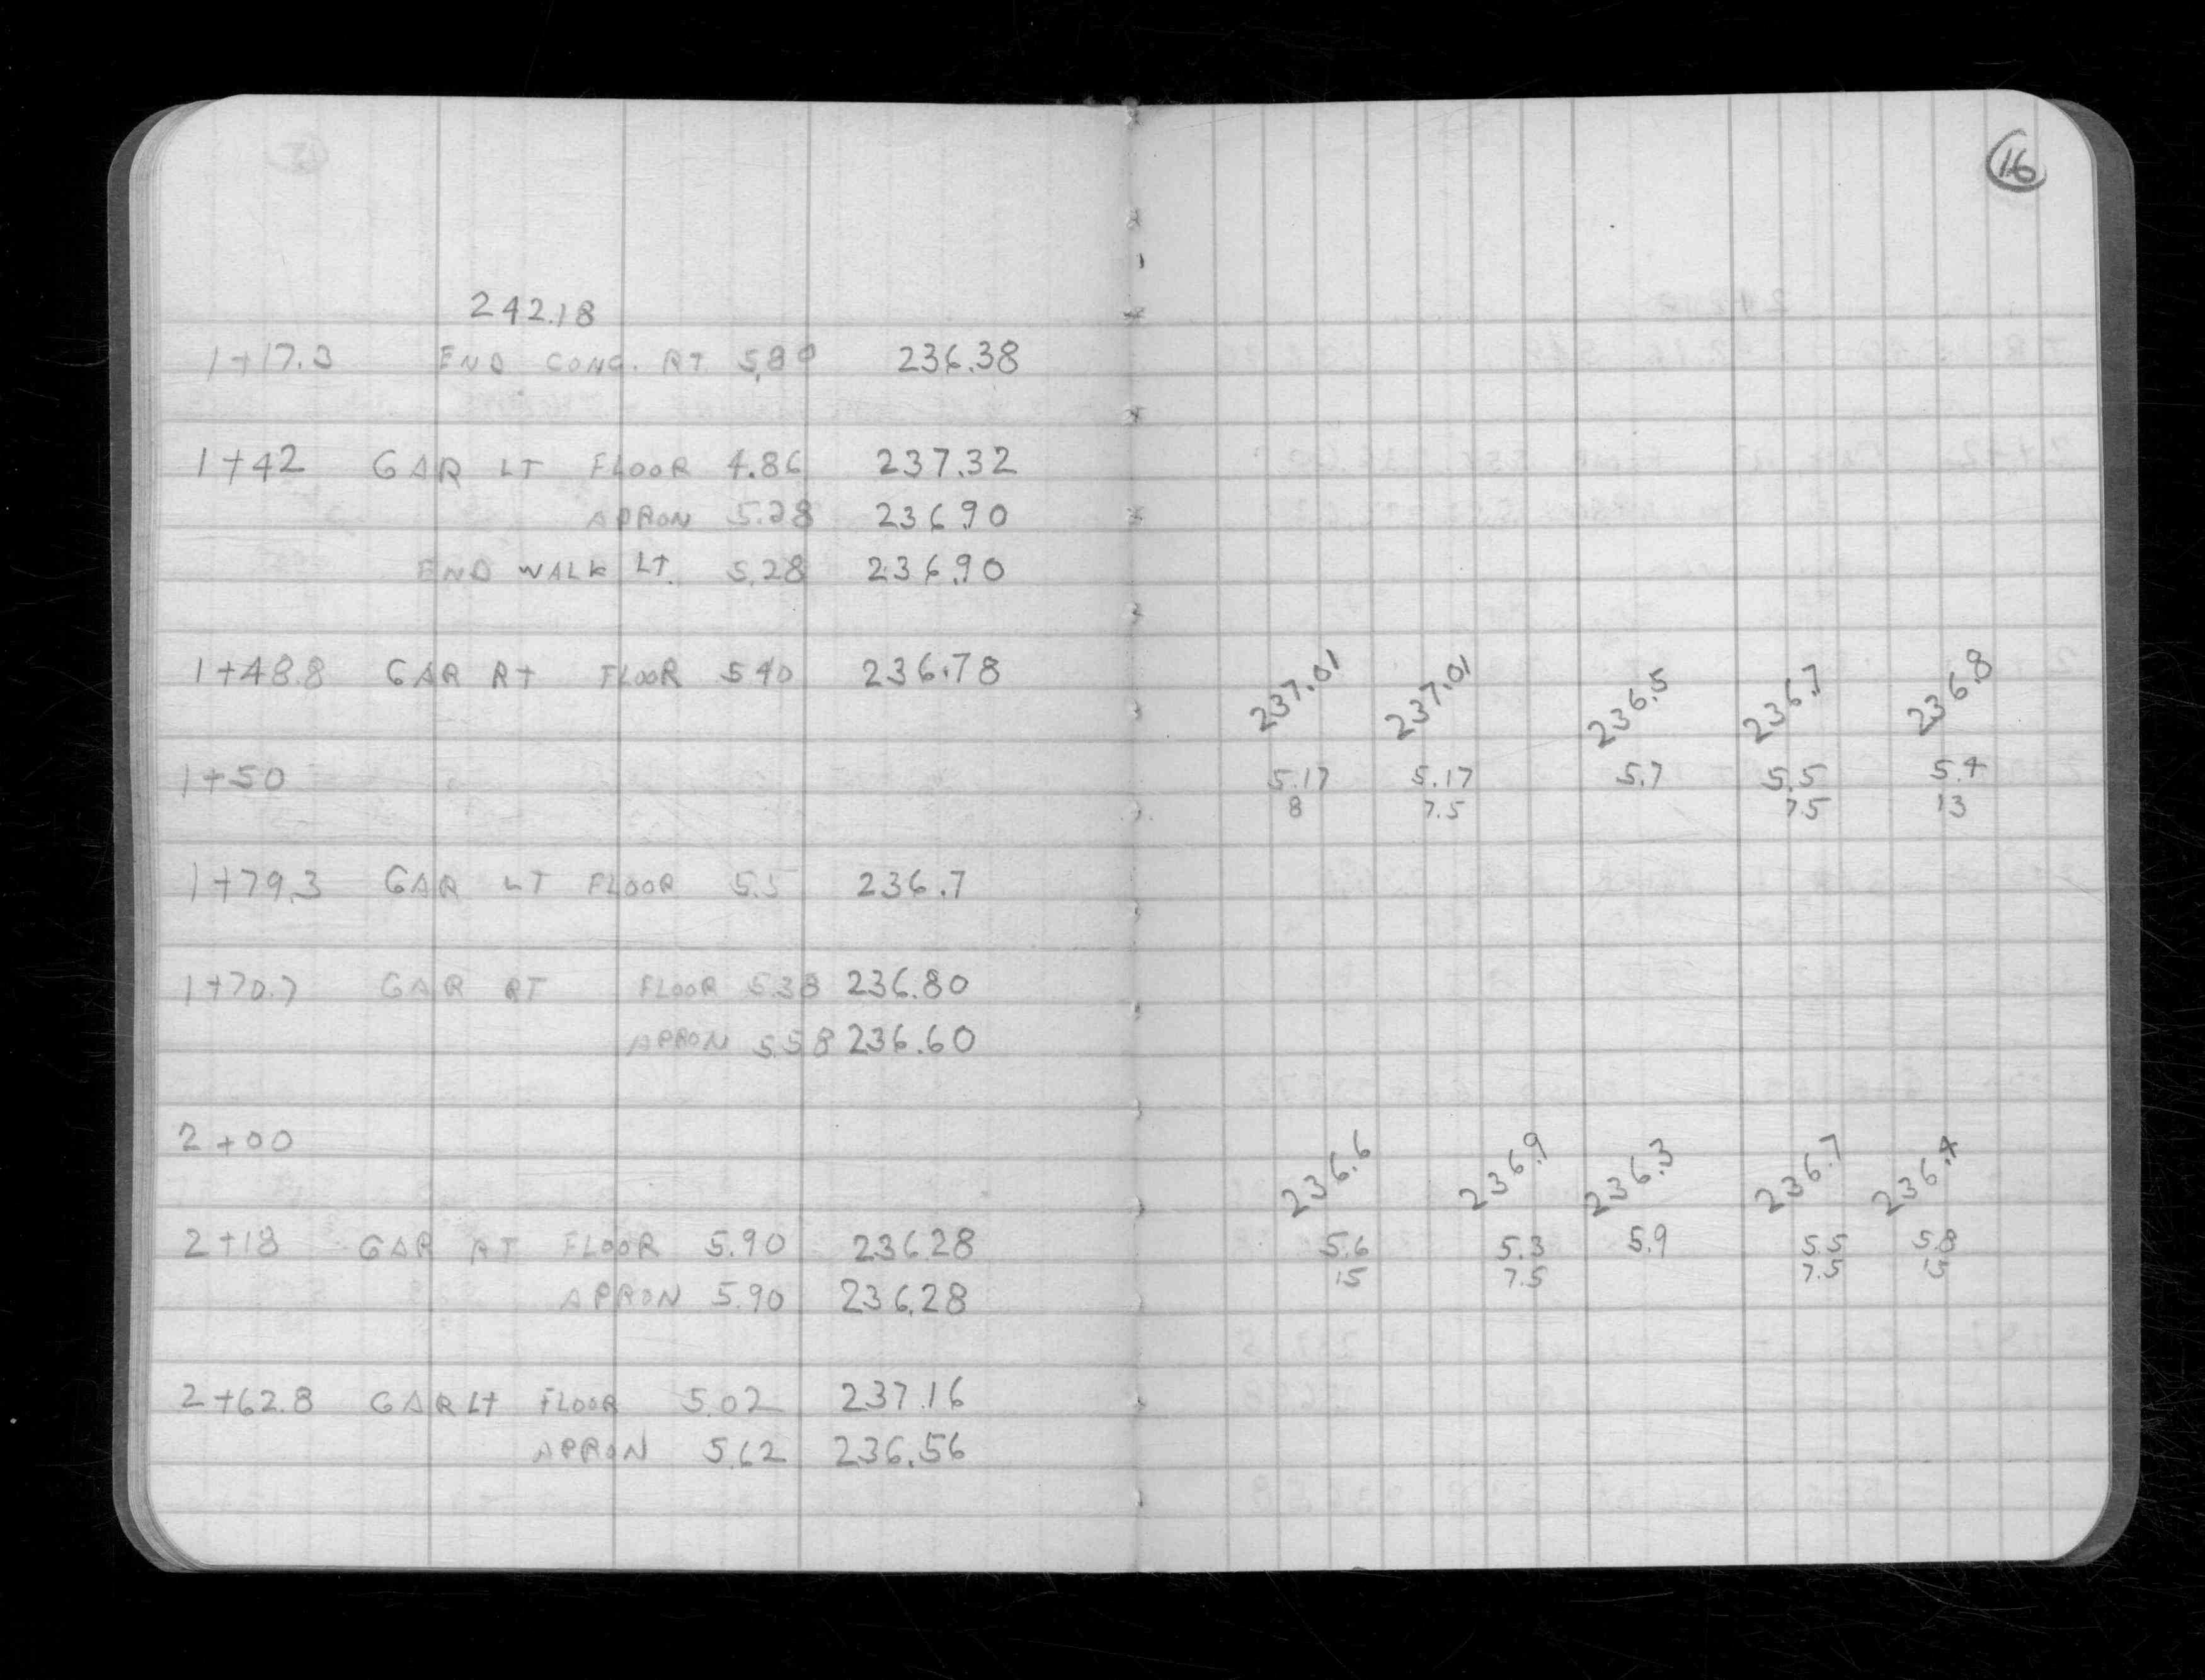 16
242.18
1+17.3 END CONC. RT. 5.80 236.38
1+42 GAR LT FLOOR 4.86 237.32
APRON 5.28 236.90
END WALK LT. 5.28 236.90
1+48.8 GAR RT FLOOR 5.40 236.78
237.01 237.01 236.5 236.7 236.8
1+50 5.17 5.17 5.7 5.5 5.4
8 7.5 7.5 13
1+79.3 GAR LT FLOOR 5.5 236.7
1+70.7 GAR RT FLOOR 5.38 236.80
APRON 5.58 236.60
2+00
236.6 236.9 236.3 236.7 236.4
2+18 GAR RT FLOOR 5.90 236.28
5.6 5.3 5.9 5.5 5.8
15 7.5 7.5 15
APRON 5.90 236.28
2+62.8 GAR LT FLOOR 5.02 237.16
APRON 5.62 236.56